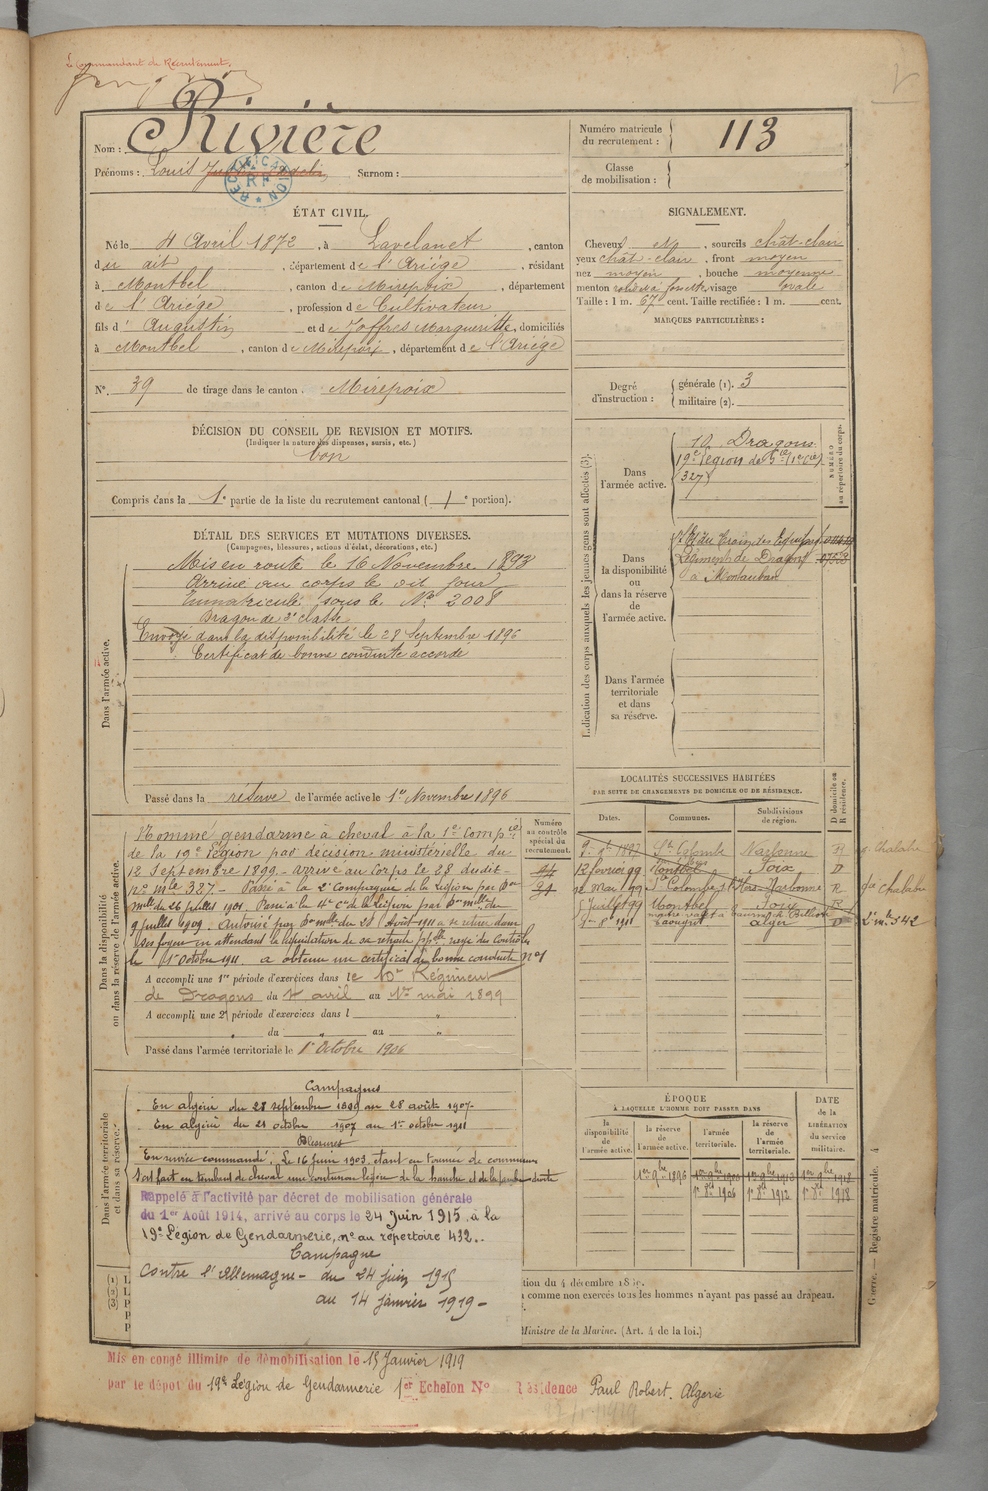 Le Commandant de Recrutement,
Nom : Rivière
Prénoms : Louis Surnom :
RECTIFICATION RF
Numéro matricule du recrutement : 113
Classe de mobilisation :
ÉTAT CIVIL.
Né le 4 Avril 1872, à Lavelanet, canton
du dit, département de l'Ariège, résidant
à Montbel, canton de Mirepoix, département
de l'Ariège, profession de Cultivateur
fils d'Augustin et de Joffres Marguerite, domiciliés
à Montbel, canton de Mirepoix, département de l'Ariège
SIGNALEMENT.
Cheveux , sourcils chât-clair
yeux chât-clair, front moyen
nez moyen, bouche moyenne
menton rond à fossette, visage ovale
Taille : 1 m. 67 cent. Taille rectifiée : 1 m. cent.
MARQUES PARTICULIÈRES :
N°. 39 de tirage dans le canton Mirepoix
Degré d'instruction : générale (1). 3
militaire (2).
DÉCISION DU CONSEIL DE REVISION ET MOTIFS.
(Indiquer la nature des dispenses, sursis, etc.)
bon
Compris dans la 1e partie de la liste du recrutement cantonal (1e portion).
DÉTAIL DES SERVICES ET MUTATIONS DIVERSES.
(Campagnes, blessures, actions d'éclat, décorations, etc.)
Dans l'armée active.
Mis en route le 16 Novembre 1893
Arrivé au corps le dit jour
Immatriculé sous le N° 2008
Dragon de 2e classe
Envoyé dans la disponibilité le 28 Septembre 1896
Certificat de bonne conduite accordé
Passé dans la réserve de l'armée active le 1er Novembre 1896
Indication des corps auxquels les jeunes gens sont affectés (3).
NUMÉRO au répertoire du corps.
Dans l'armée active.
10 Dragons
19e Légion de
327
Dans la disponibilité ou dans la réserve de l'armée active.
du Train des Equipages
Régiment de Dragons
à Montauban
Dans l'armée territoriale et dans sa réserve.
Dans la disponibilité ou dans la réserve de l'armée active.
Numéro au contrôle spécial du recrutement.
Nommé gendarme à cheval à la 1e Compie
de la 19e Légion par décision ministérielle du
12 Septembre 1899 - arrivé au corps le 28 dudit -
no mle 327 - Passé à la 2e Compagnie de la Légion par Don
mlle du 26 juillet 1901. Passé à la 4e Cie de la Légion par Don mlle du
9 juillet 1909. Autorisé par Don mlle du 28 Août 1911 à se retirer dans
ses foyers en attendant la liquidation de sa retraite pplle rayé des contrôles
le 1er octobre 1911. a obtenu un certificat de bonne conduite
A accompli une 1re période d'exercices dans le 10e Régiment
de Dragons du 4 avril au 1er mai 1899
A accompli une 2e période d'exercices dans l "
" du " au "
Passé dans l'armée territoriale le 1er Octobre 1906
LOCALITÉS SUCCESSIVES HABITÉES
PAR SUITE DE CHANGEMENTS DE DOMICILE OU DE RÉSIDENCE.
Dates. Communes. Subdivisions de région. D domicile ou R résidence.
1897 Ste Colombe Narbonne R
12 février 99 Montbel Foix D
12 Mai 99 Ste Colombe Narbonne R
5 juillet 99 Montbel Foix
1911 Alger D
Dans l'armée territoriale et dans sa réserve.
Campagnes
En algérie du 28 septembre 1899 au 28 août 1907.
En algérie du 21 octobre 1907 au 1er octobre 1911
Blessures
En service commandé : Le 16 juin 1903, étant en tournée de communes
s'est fait en tombant de cheval une contusion légère de la hanche et de la jambe droite
Rappelé à l'activité par décret de mobilisation générale
du 1er Août 1914, arrivé au corps le 24 juin 1915 à la
19e Légion de Gendarmerie, no au répertoire 432.
Campagne
contre l'Allemagne - du 24 juin 1915
au 14 janvier 1919 -
ÉPOQUE
À LAQUELLE L'HOMME DOIT PASSER DANS
la disponibilité de l'armée active. la réserve de l'armée active. l'armée territoriale. la réserve de l'armée territoriale.
DATE de la LIBÉRATION du service militaire.
1er 9bre 1896
1er 8bre 1906 1er 8bre 1912 1er 8bre 1918
Guerre. — Registre matricule. 4
comme non exercés tous les hommes n'ayant pas passé au drapeau.
Ministre de la Marine. (Art. 4 de la loi.)
Mis en congé illimité de démobilisation le 15 Janvier 1919
par le dépôt du 19e Légion de Gendarmerie 1er Echelon No Résidence Paul Robert, Algerie